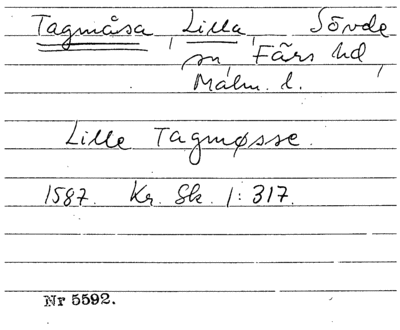 Tagmåsa, Lilla, Sövde
sn, Färs hd,
Malm. l.
Lille Tagmøsse.
1587. Kr. Sk. 1:317.
Nr 5592.